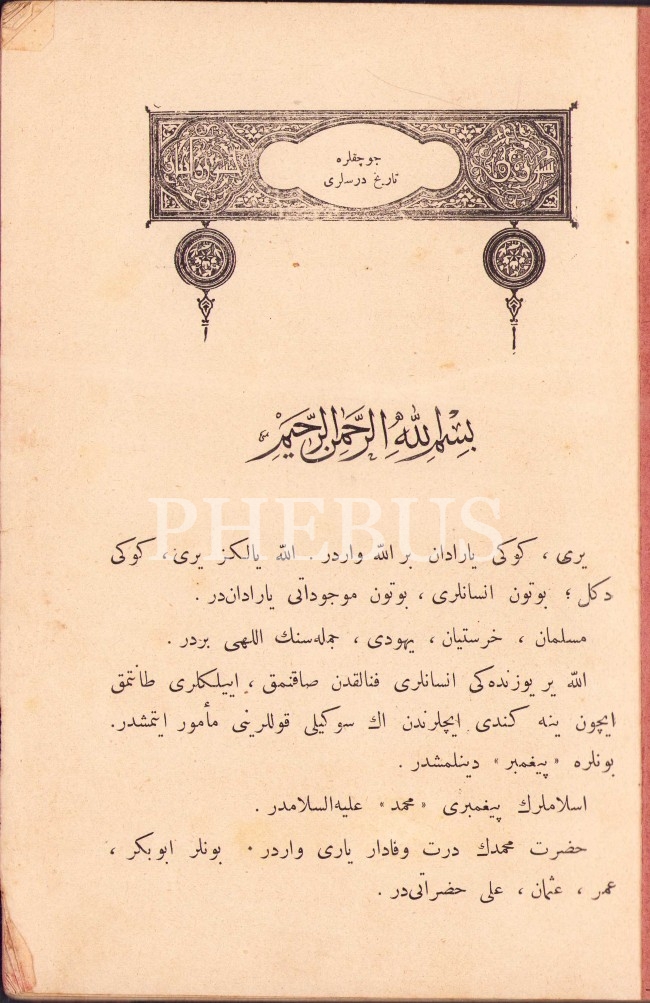 چوجقلره
تاريخ درسلرى
بِسْمِ اللهِ الرَّحْمٰنِ الرَّحِيمِ
PHEBUS
يرى ، كوكى يارادان بر الله واردر . الله يالكز يرى ، كوكى
دكل ؛ بوتون انسانلرى ، بوتون موجوداتى يارادان‌در .
مسلمان ، خرستيان ، يهودى ، جمله‌سنك اللهى بردر .
الله ير يوزنده‌كى انسانلرى فنالقدن صاقنمق ، اييلكلرى طانتمق
ايچون ينه كندى ايچلرندن اك سوكيلى قوللرينى مأمور ايتمشدر.
بونلره «پيغمبر» دينلمشدر .
اسلاملرك پيغمبرى «محمد» عليه‌السلامدر .
حضرت محمدك درت وفادار يارى واردر . بونلر ابوبكر ،
عمر ، عثمان ، على حضراتى‌در .